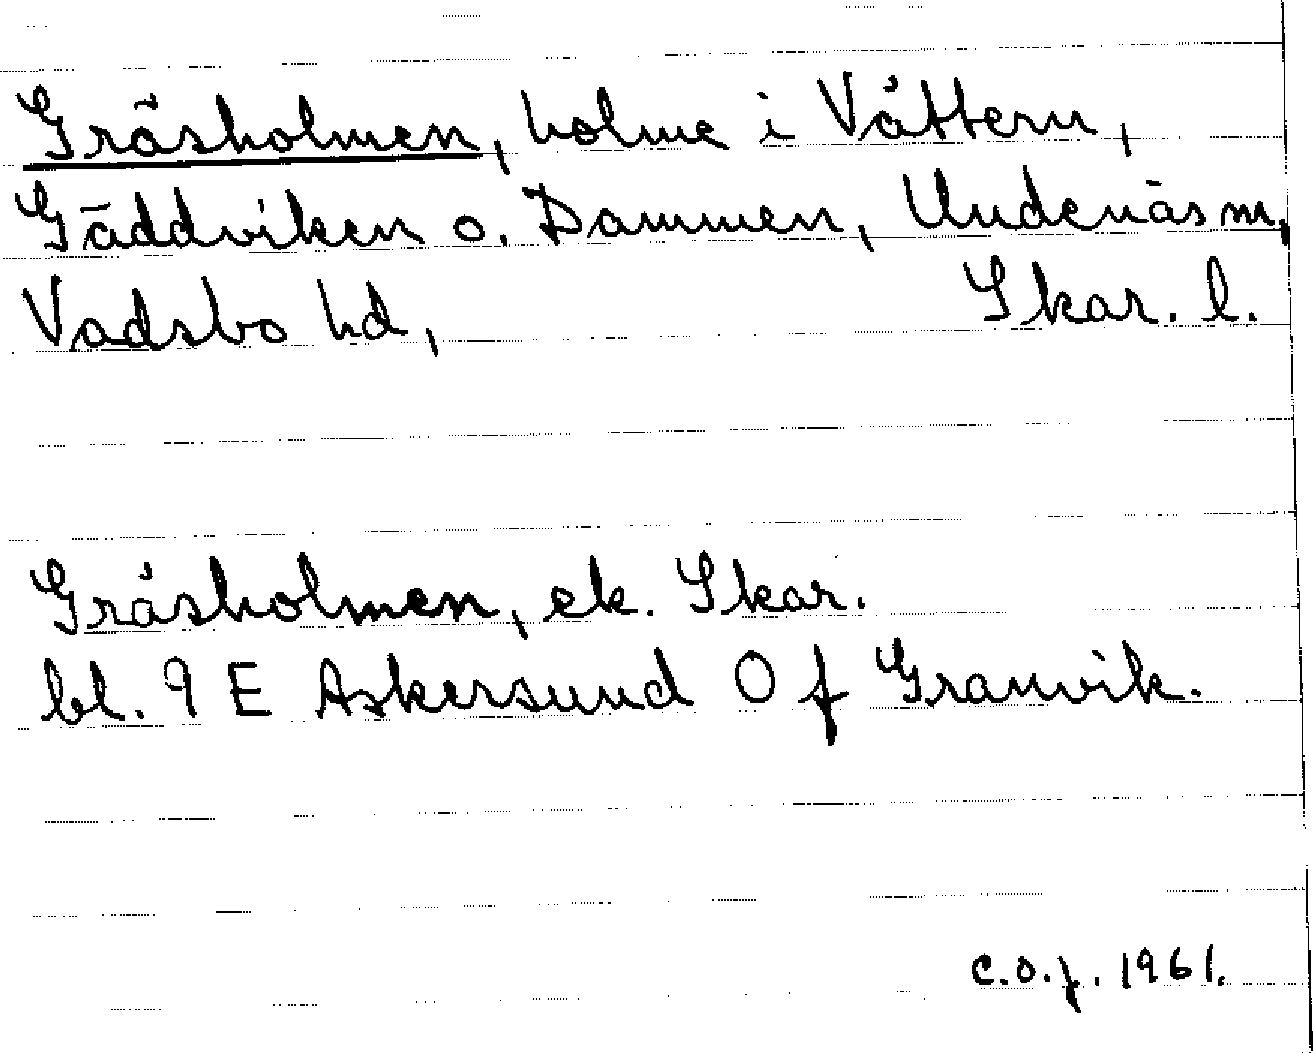 Gräsholmen, holme i Vättern,
Gäddviken o. Dammen, Undenäs m.
Vadsbo hd, Skar. l.
Gräsholmen, ek. Skar.
bl. 9 E Askersund O f Granvik.
C.O.J. 1961.